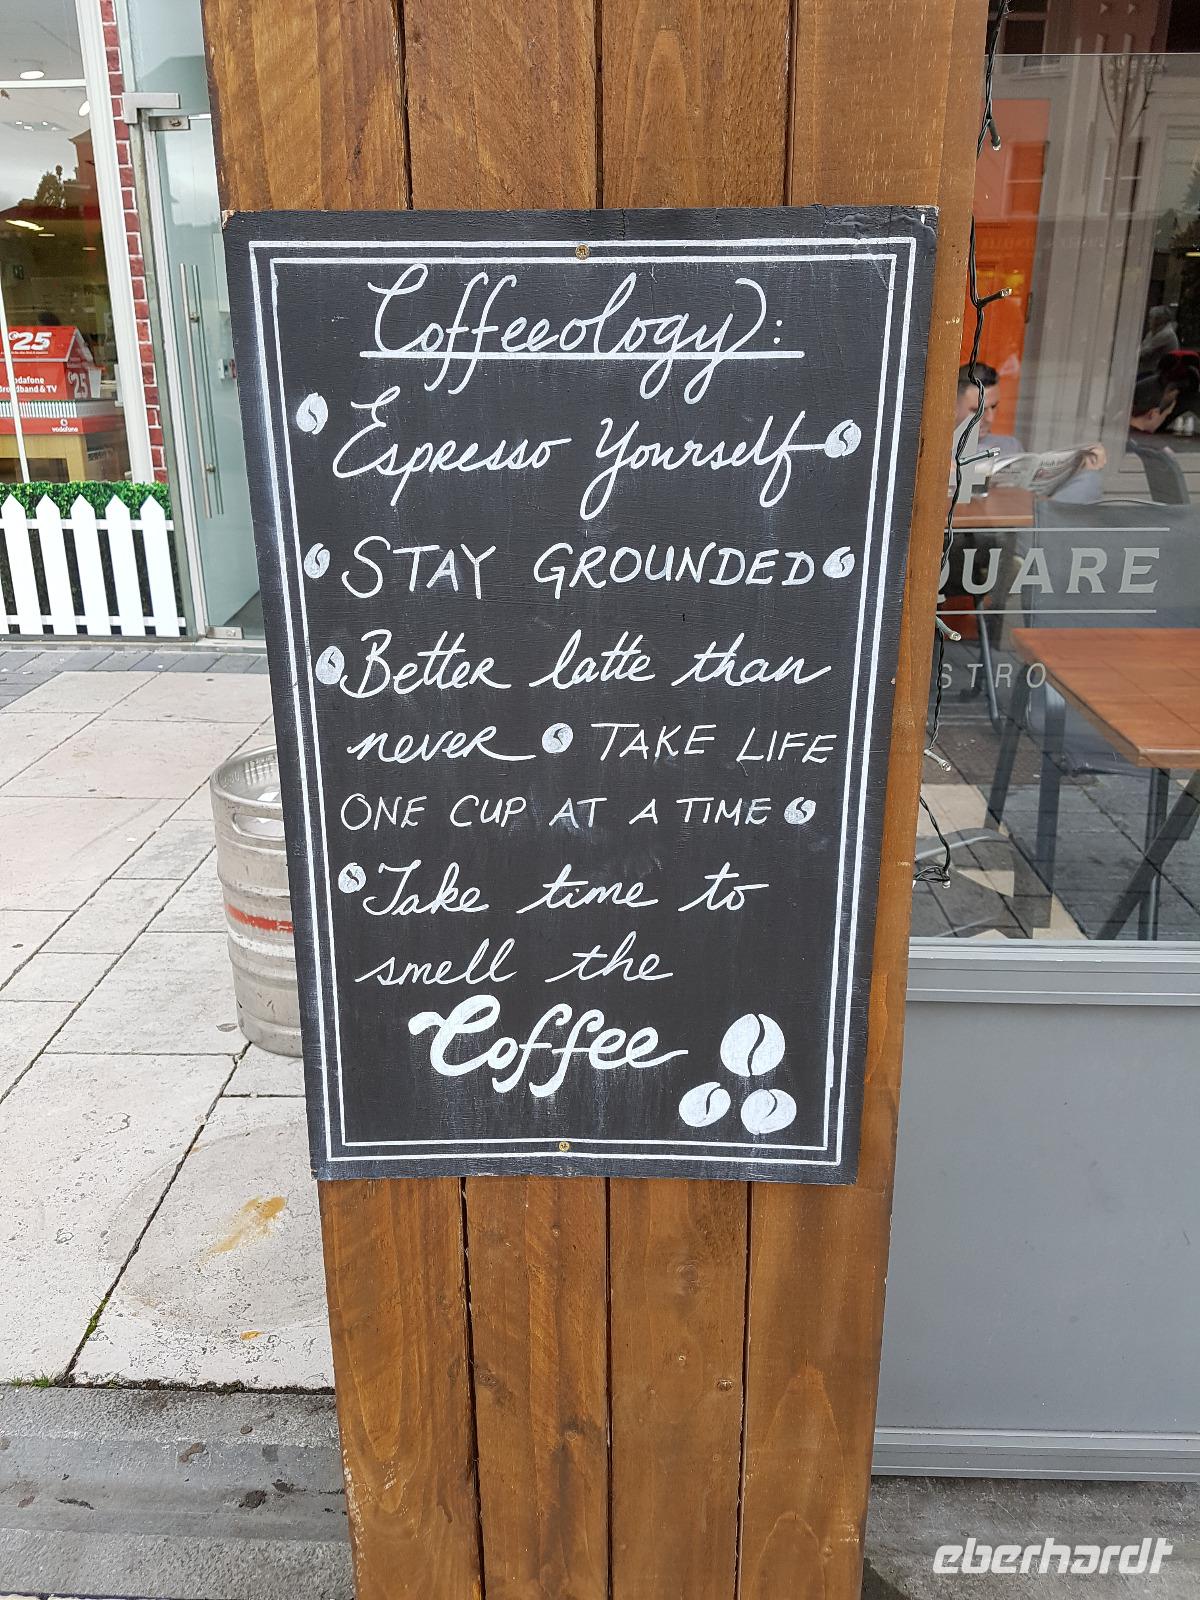 Coffeeology:
Espresso Yourself
STAY GROUNDED
Better latte than
never TAKE LIFE
ONE CUP AT A TIME
Take time to
smell the
Coffee
€25
Broadband & TV
€25
vodafone
UARE
STRO
eberhardt